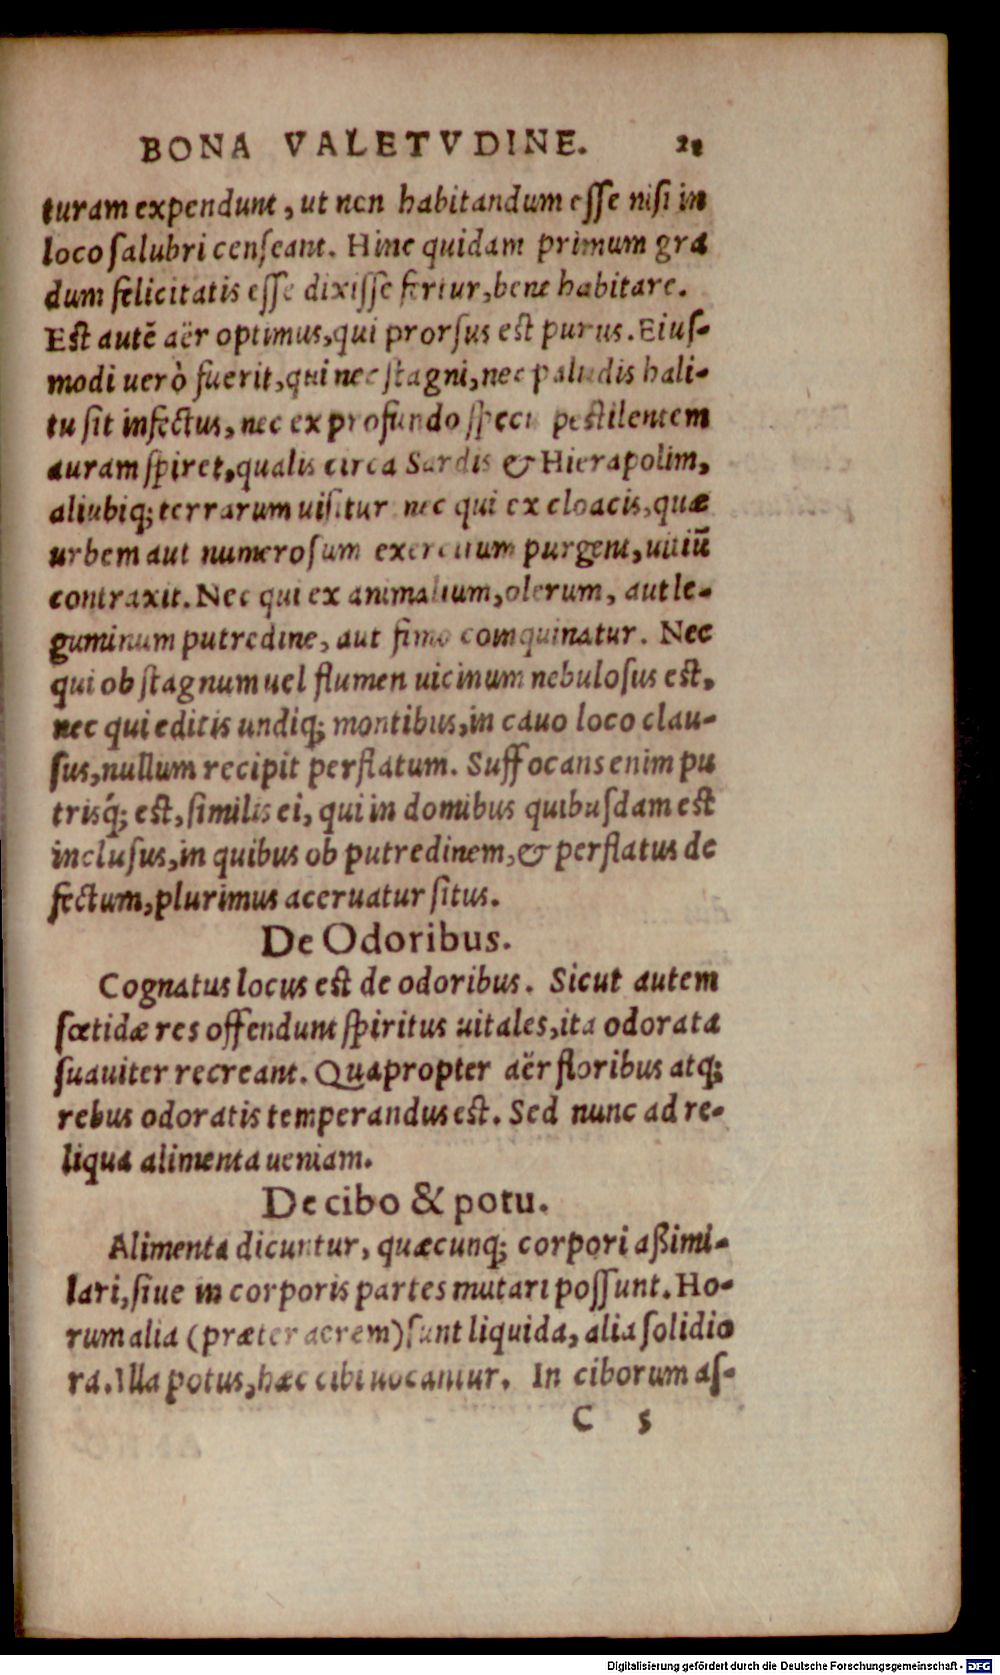 BONA VALETVDINE. 21
turam expendunt, ut non habitandum esse nisi in
loco salubri censeant. Hinc quidam primum gra
dum felicitatis esse dixisse fertur, bene habitare.
Est autē aër optimus, qui prorsus est purus. Eius-
modi uerò fuerit, qui nec stagni, nec paludis hali-
tu sit infectus, nec ex profundo specu pestilentem
auram spiret, qualis circa Sardis & Hierapolim,
aliubiq; terrarum uisitur nec qui ex cloacis, quæ
urbem aut numerosum exercitum purgent, uitiū
contraxit. Nec qui ex animalium, olerum, aut le-
guminum putredine, aut fimo coinquinatur. Nec
qui ob stagnum uel flumen uicinum nebulosus est,
nec qui editis undiq; montibus, in cauo loco clau-
sus, nullum recipit perflatum. Suffocans enim pu
trisq́; est, similis ei, qui in domibus quibusdam est
inclusus, in quibus ob putredinem, & perflatus de
fectum, plurimus aceruatur situs.
De Odoribus.
Cognatus locus est de odoribus. Sicut autem
fœtidæ res offendunt spiritus uitales, ita odorata
suauiter recreant. Quapropter aër floribus atq;
rebus odoratis temperandus est. Sed nunc ad re-
liqua alimenta ueniam.
De cibo & potu.
Alimenta dicuntur, quæcunq; corpori aßimi-
lari, siue in corporis partes mutari possunt. Ho-
rum alia (præter aerem) sunt liquida, alia solidio
ra. Illa potus, hæc cibi uocantur. In ciborum as-
C 5
Digitalisierung gefördert durch die Deutsche Forschungsgemeinschaft - DFG